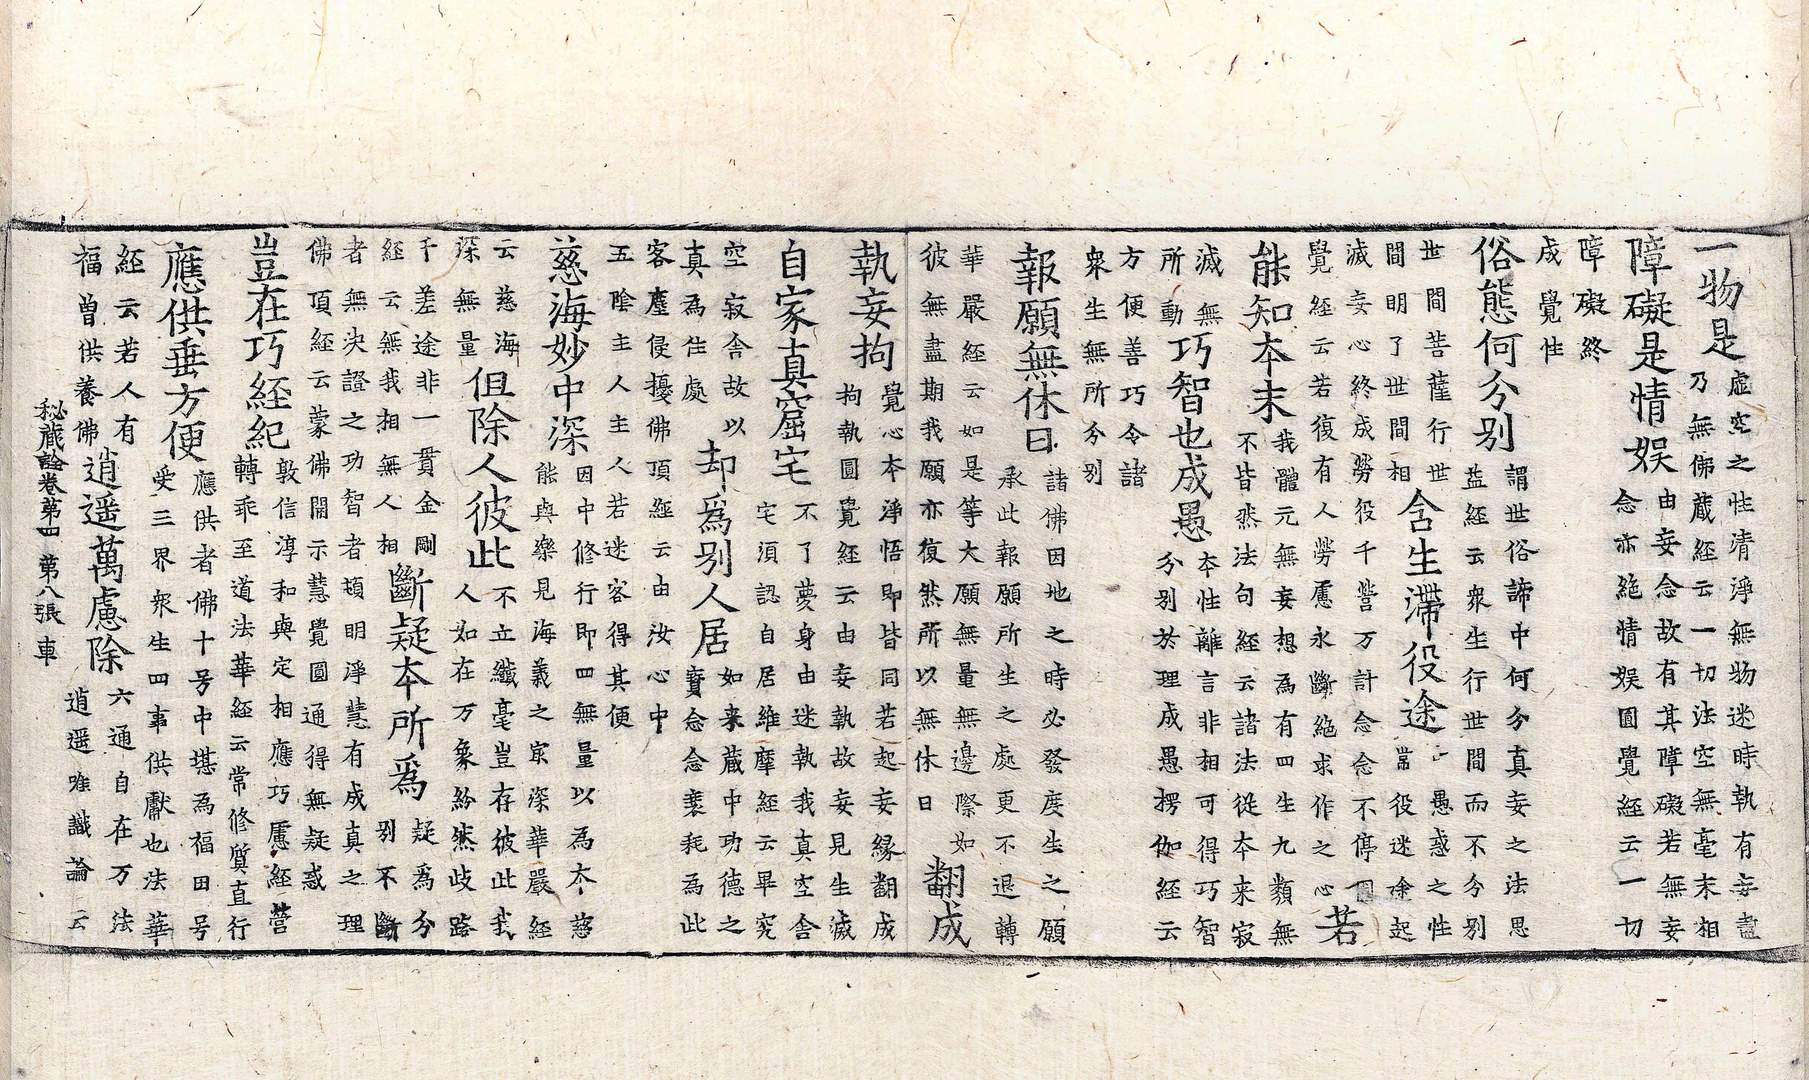 一物是
虛空之性清淨無物迷時執有妄盡
乃無佛藏經云一切法空無毫末相
障礙是情娱
由妄念故有其障礙若無妄
念亦絕情娱圓覺經云一切
障礙終
成覺性
俗態何分别
謂世俗諦中何分真妄之法思
益經云衆生行世間而不分别
世間菩薩行世
間明了世間相
含生滯役途
愚惑之性
常役迷途起
滅妄心終成勞役千營万計念念不停圓
覺經云若復有人勞慮永斷絕求作之心
若
能知本末
我體元無妄想為有四生九類無
不皆然法句經云諸法從本来寂
滅無
所動
巧智也成愚
本性離言非相可得巧智
分别於理成愚楞伽經云
方便善巧令諸
衆生無所分别
報願無休日
諸佛因地之時必發度生之願
承此報願所生之處更不退轉
華嚴經云如是等大願無量無邊際如
彼無盡期我願亦復然所以無休日
翻成
執妄拘
覺心本淨悟即皆同若起妄緣翻成
拘執圓覺經云由妄執故妄見生滅
自家真窟宅
不了夢身由迷執我真空舍
宅須認自居維摩經云畢究
空寂舍故以
真為住處
却爲别人居
如来藏中功德之
寳念念衰耗為此
客塵侵擾佛頂經云由汝心中
五陰主人主人若迷客得其便
慈海妙中深
因中修行即四無量以為大慈
能與樂見海義之宗深華嚴經
云慈海
深無量
但除人彼此
不立纖毫豈存彼此我
人如在万象紛然歧路
千差途非一貫金剛
經云無我相無人相
斷疑本所爲
疑爲分
别不斷
者無決證之功智者頓明淨慧有成真之理
佛頂經云蒙佛開示慧覺圓通得無疑惑
豈在巧經紀
敦信淳和與定相應巧慮經營
轉乖至道法華經云常修質直行
應供垂方便
應供者佛十号中堪為福田号
受三界衆生四事供獻也法華
經云若人有
福曾供養佛
逍遥萬慮除
六通自在万法
逍遥唯識論云
秘藏詮卷第四 第八張 車